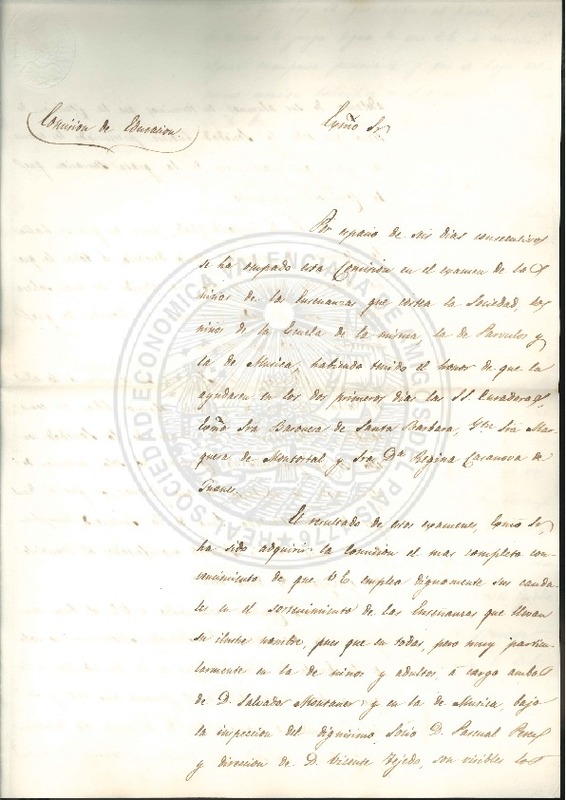 Comision de Educacion
Exmõ Sr.
Por espacio de seis dias consecutivos
se ha ocupado esta Comision en el examen de las
niñas de las Enseñanzas que costea la Sociedad, los
niños de la Escuela de la misma, la de Parvulos y
la de Musica, habiendo tenido el honor de que la
ayudasen en los dos primeros dias las SS. Curadoras,
Exmã Sra Baronesa de Santa Barbara, Sra Mar-
quesa de Montortal y Sra Dª Regina Casanova de
El resultado de esos examenes, Exmõ Sr,
ha sido adquirir la Comision el mas completo con-
vencimiento de que V.E. emplea dignamente sus cauda-
les en el sostenimiento de las Enseñanzas que llevan
su ilustre nombre, pues que en todas, pero muy particu-
larmente en la de niños y adultos, á cargo ambas
de D. Salvador Montaner y en la de Musica, bajo
la inspeccion del dignisimo Socio D. Pascual Perez
y direccion de D. Vicente Tejedo, son visibles los
REAL SOCIEDAD ECONOMICA VALENCIANA DE AMIGOS DEL PAIS 1776